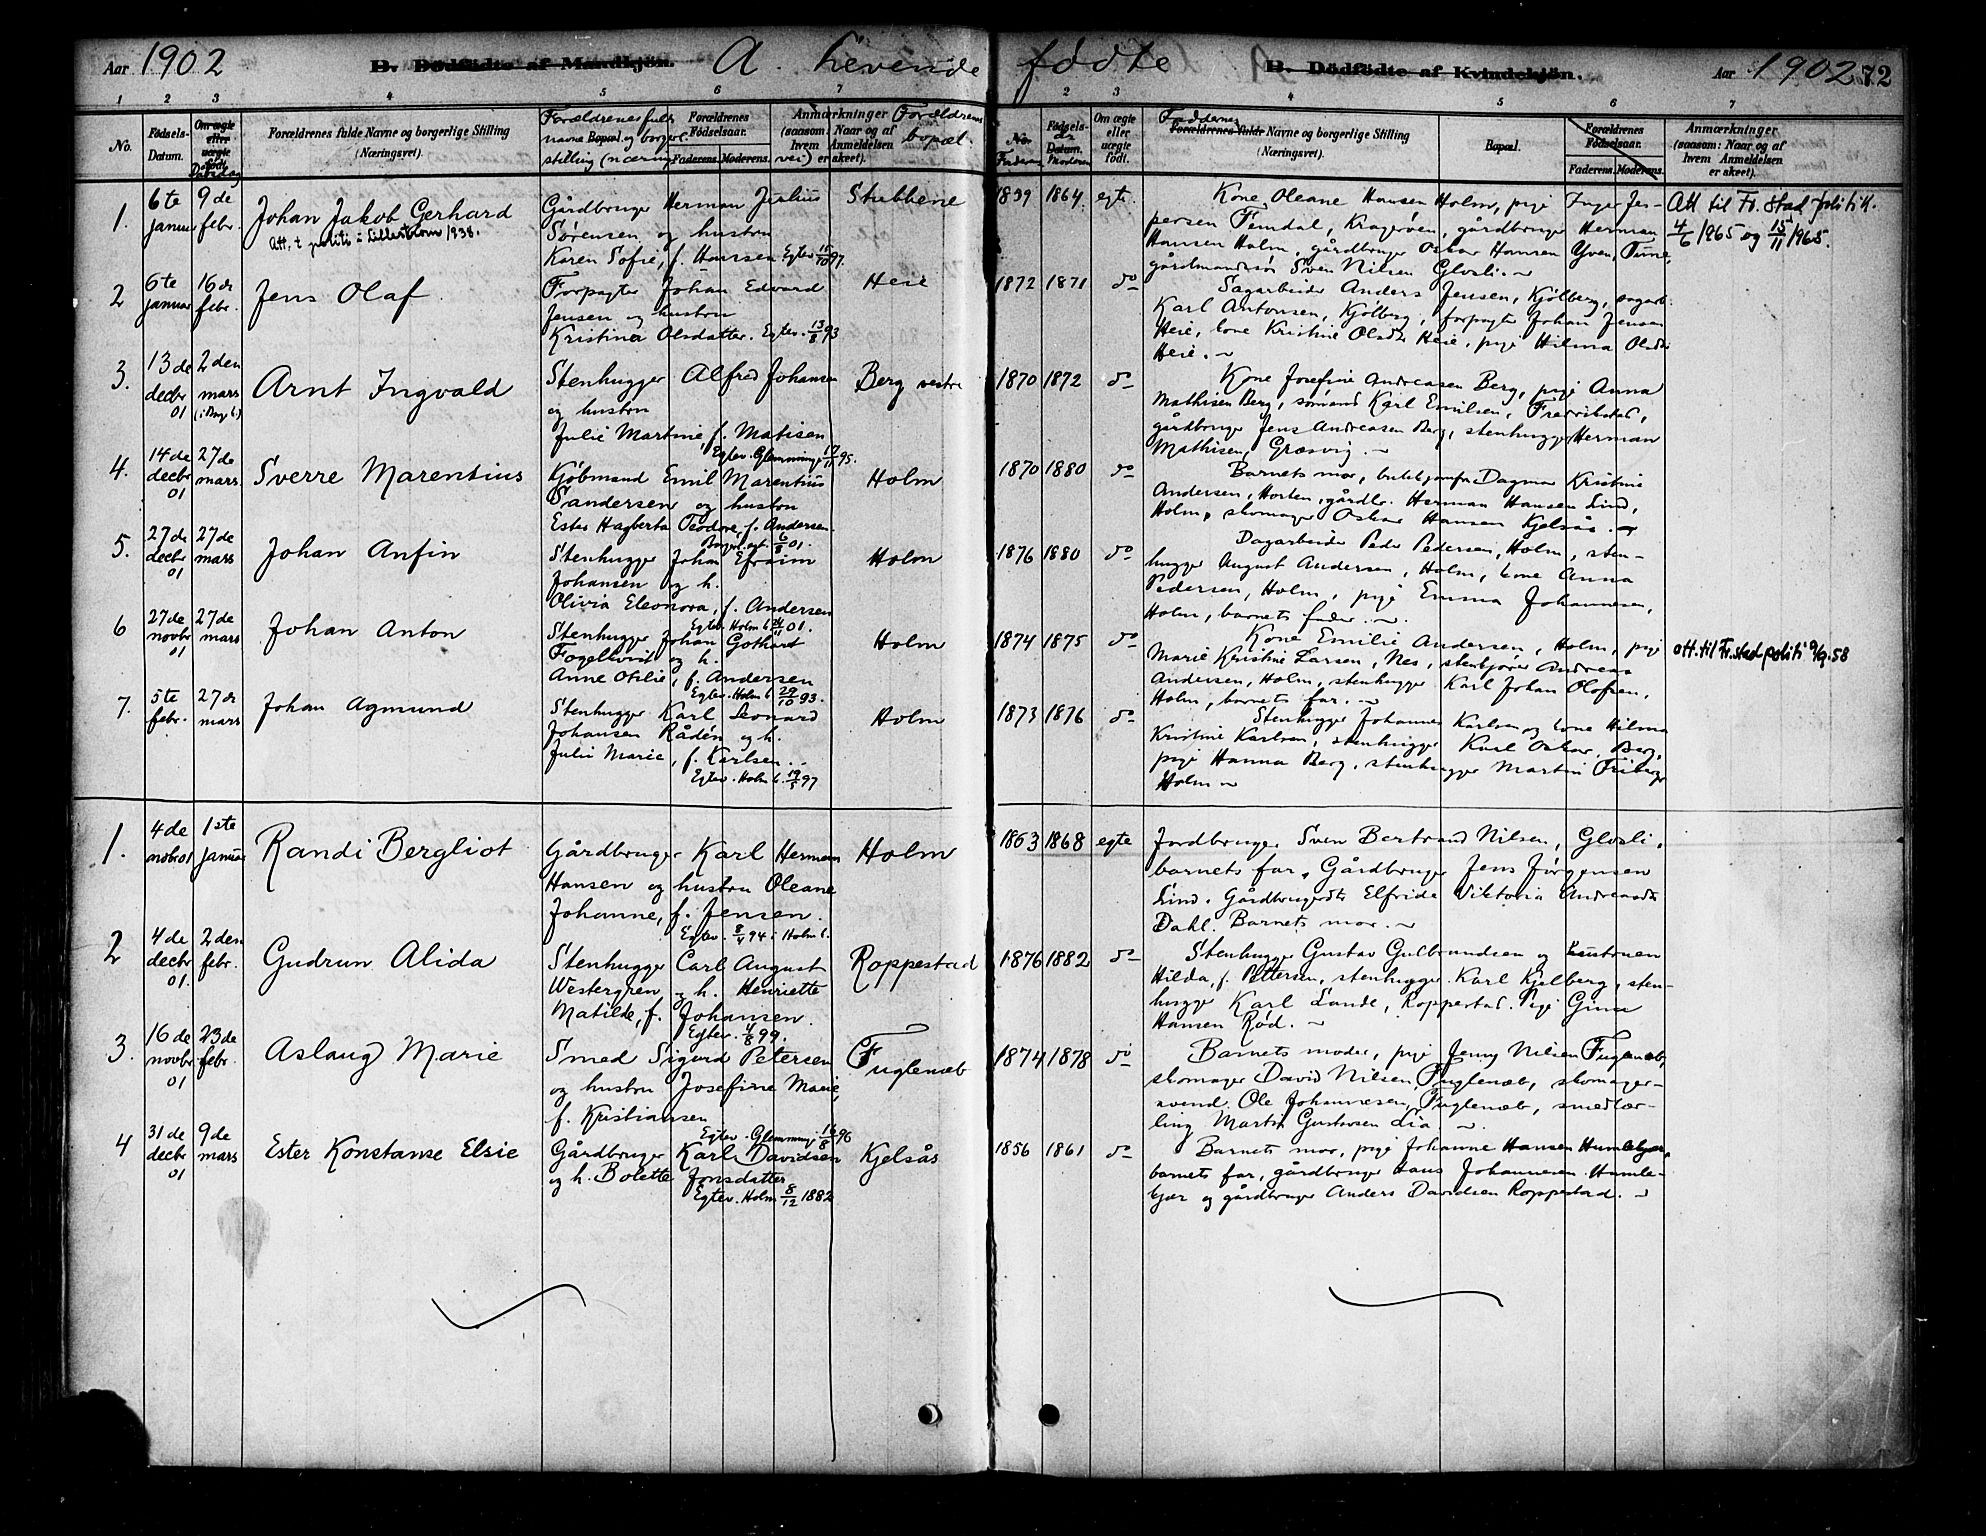 Aar 1902 B. Dödfödte af Mandkjön. A. Levende fødte B. Dödfödte af Kvindekjön. Aar 1902 72
1 2 3 4 5 6 7 2 3 4 5 6 7
No. Födsels-Datum. Om ægte eller uægte födt. Daabsdag Forældrenes fulde Navne og borgerlige Stilling (Næringsvei). Forældrenes fulde navne Bopæl. og borgerl. stilling (næringsvei) Forældrenes Födselsaar. Faderens. Moderens. Anmærkninger (saasom: Naar og af hvem Anmeldelsen er skeet). Forældrenes bopæl.
No. Faderens Födsels-Datum. Moderens Om ægte eller uægte födt. Faddernes Forældrenes fulde Navne og borgerlige Stilling (Næringsvei). Bopæl. Forældrenes Födselsaar. Faderens. Moderens. Anmærkninger (saasom: Naar og af hvem Anmeldelsen er skeet).
1. 6te januar 9de febr. Johan Jakob Gerhard
Att. t. politi i Lillestrøm 1938.
Gårdbruger Herman Julius
Sørensen og hustru
Karen Sofie, f. Hanssen Egtev 15/10 97.
Stubbene
1839 1864 egte.
Kone Oleane Hansen Holm, pige Inger Jes-
persen Femdal, Kragerøen, gårdbruger Herman
Hansen Holm, gårdbruger Oskar Hansen Yven, Tune,
gårdmandssøn Sven Nilsen Glosli.
Att til Fr. Stad politik.
4/6 1965 og 15/11 1965.
2 6te januar 16de febr. Jens Olaf
Forpagter Johan Edvard
Jensen og hustru
Kristine Olsdatter. Egtev. 13/8 93
Heie
1872 1871 do
Sagarbeider Anders Jensen, Kjølberg, sagarb.
Karl Antonsen, Kjølberg, forpagter Johan Jensen
Heie, kone Kristine Olsdt Heie, pige Hilma Olsdt
Heie.
3. 13de decbr 01 2den mars Arnt Ingvald
Stenhugger Alfred Johansen
og hustru
Julie Martine, f. Matisen
Egtev. Glemminge 17/11 95.
Berg vestre
1870 1872 do
Kone Josefine Andreasen Berg, pige Anna
Mathisen Berg, sømand Karl Emilsen, Fredrikstad,
gårdbruger Jens Andreasen Berg, stenhugger Herman
Mathisen, Græsvig.
4. 14de decbr 01 27de mars Sverre Marentius
Kjøbmand Emil Marentius
Sandersen og hustru
Ester Hagberta Teodore, f. Andersen
Borgerl. egt. 6/8 01.
Holm
1870 1880 do
Barnets mor, butikjomfru Dagmar Kristine
Andersen, Horten, gårdbr. Herman Hansen Lind,
Holm, skomager Oskar Hansen Kjelsås.
5. 27de decbr 01 27de mars Johan Anfin
Stenhugger Johan Efraim
Johansen og h.
Olivia Eleonora, f. Andersen
Egtev. Holm k. 24/11 01.
Holm
1876 1880 do
Dagarbeider Peder Pedersen, Holm, sten-
hugger August Andersen, Holm, kone Anna
Pedersen, Holm, pige Emma Johannesen,
Holm, barnets fader.
6 27de novbr 01 27de mars Johan Anton
Stenhugger Johan Gothart
Fogelkvist og h.
Anne Otilie, f. Andersen
Egtev. Holm k. 29/10 93.
Holm
1874 1875 do
Kone Emilie Andersen, Holm, pige
Marie Kristine Larsen, Nes, stenkjører Andreas
Andersen, Holm, stenhugger Karl Johan Olofsen,
Holm, barnets far.
att. til Fr.stad politi 9/9.58
7. 5te febr. 27de mars Johan Agmund
Stenhugger Karl Leonard
Johansen Rådén og h.
Julie Marie, f. Karlsen.
Egtev. Holm k. 97
Holm
1873 1876 do
Stenhugger Johannes Karlsen og kone Hilma
Kristine Karlsen, stenhugger Karl Oskar Berg,
pige Hanna Berg, stenhugger Martin Friberg
Holm
1. 4de novbr 01 1ste januar Randi Bergliot
Gårdbruger Karl Herman
Hansen og hustru Oleane
Johanne, f. Jensen.
Egtev. 8/4 94 i Holm k.
Holm
1863 1868 egte
Jordbruger Sven Bertrand Nilsen, Glosli,
barnets far, Gårdbruger Jens Jørgensen
Lind. Gårdbrugerdt Elfride Viktoria Andreasdt
Dahl. Barnets mor.
2 4de decbr 01. 2den febr. Gudrun Alida
Stenhugger Carl August
Westergren og h. Henriette
Matilde, f. Johansen.
Egtev. 4/8 99.
Roppestad
1876 1882 do
Stenhugger Gustav Gulbrandsen og hustruen
Hilda, f. Pettersen, stenhugger Karl Kjelberg, sten-
hugger Karl Lande, Roppestad. Pige Gina
Hansen Rød.
3. 16de novbr 01 23de febr. Aslaug Marie
Smed Sigurd Petersen
og hustru Josefine Marie,
f. Kristiansen
Egtev. Glemminge 16/8 96
Fuglenæb
1874 1878 do
Barnets moder, pige Jenny Nilsen Fuglenæb,
skomager David Nilsen, Fuglenæb, skomager-
svend Ole Johannesen, Fuglenæb, smedlær-
ling Martin Gustavsen Lia.
4 31de decbr 01 9de mars Ester Konstanse Elsie
Gårdbruger Karl Davidsen
og h. Bolette Jonsdatter
Egtev. Holm 8/12 1882
Kjelsås
1856 1861 do
Barnets mor, pige Johanne Hansen Humlekjær,
barnets far, gårdbruger Hans Johannesen Humle-
kjær og gårdbruger Anders Davidsen Roppestad.